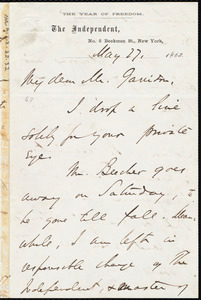 THE YEAR OF FREEDOM.
The Independent,
No. 5 Beekman St., New York,
May 27, 1863
My dear Mr. Garrison,
I drop a line
solely for your private
eye.
Mr. Beecher goes
away on Saturday, to
be gone till fall. Mean-
while, I am left in
responsible charge of The
Independent, & master of